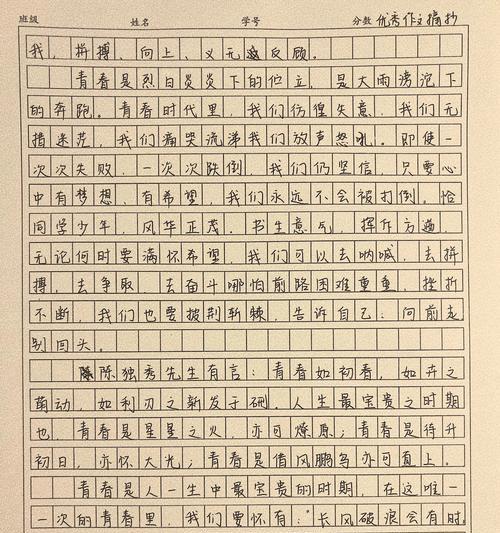 班级 姓名 学号 分数 优秀作文摘抄
我，拼搏、向上、义无反顾。
青春是烈日炎炎下的伫立，是大雨滂沱下
的奔跑。青春时代里，我们彷徨失意，我们无
措迷茫，我们痛哭流涕我们放声怒吼。即使一
次次失败，一次次跌倒，我们仍坚信，只要心
中有梦想、有希望，我们永远不会被打倒。恰
同学少年，风华正茂。书生意气，挥斥方遒，
无论何时要满怀希望，我们可以去呐喊，去拼
搏，去争取，去奋斗哪怕前路困难重重，挫折
不断，我们也要披荆斩棘，告诉自己：向前走
别回头。
陈独秀先生有言：青春如初春，如卉之
萌动，如利刃之新发于硎。人生最宝贵之时期
也，青春是星星之火，亦可燎原；青春是待升
初日，亦怀大光；青春是借风鹏鸟亦可直上。
青春是人一生中最宝贵的时期，在这唯一
一次的青春里，我们要怀有：长风破浪会有时，